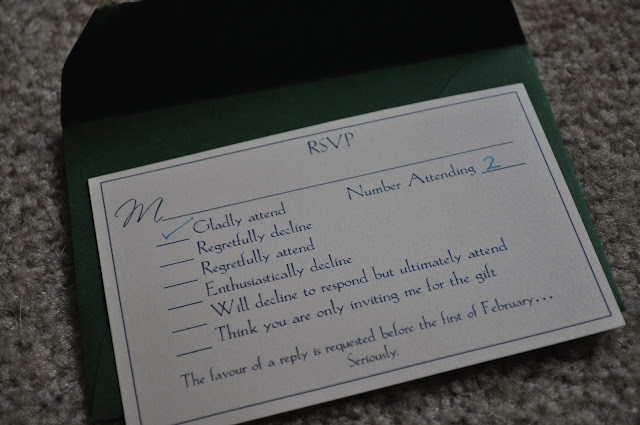 RSVP
M
Number Attending 2
✓ Gladly attend
Regretfully decline
Regretfully attend
Enthusiastically decline
Will decline to respond but ultimately attend
Think you are only inviting me for the gift
The favour of a reply is requested before the first of February...
Seriously.